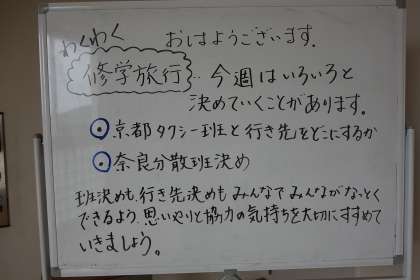 わくわく
おはようございます。
修学旅行‥今週はいろいろと
決めていくことがあります。
京都タクシー班と行き先をどこにするか
奈良分散班決め
班決めも、行き先決めもみんなでみんながなっとく
できるよう、思いやりと協力の気持ちを大切にすすめて
いきましょう。